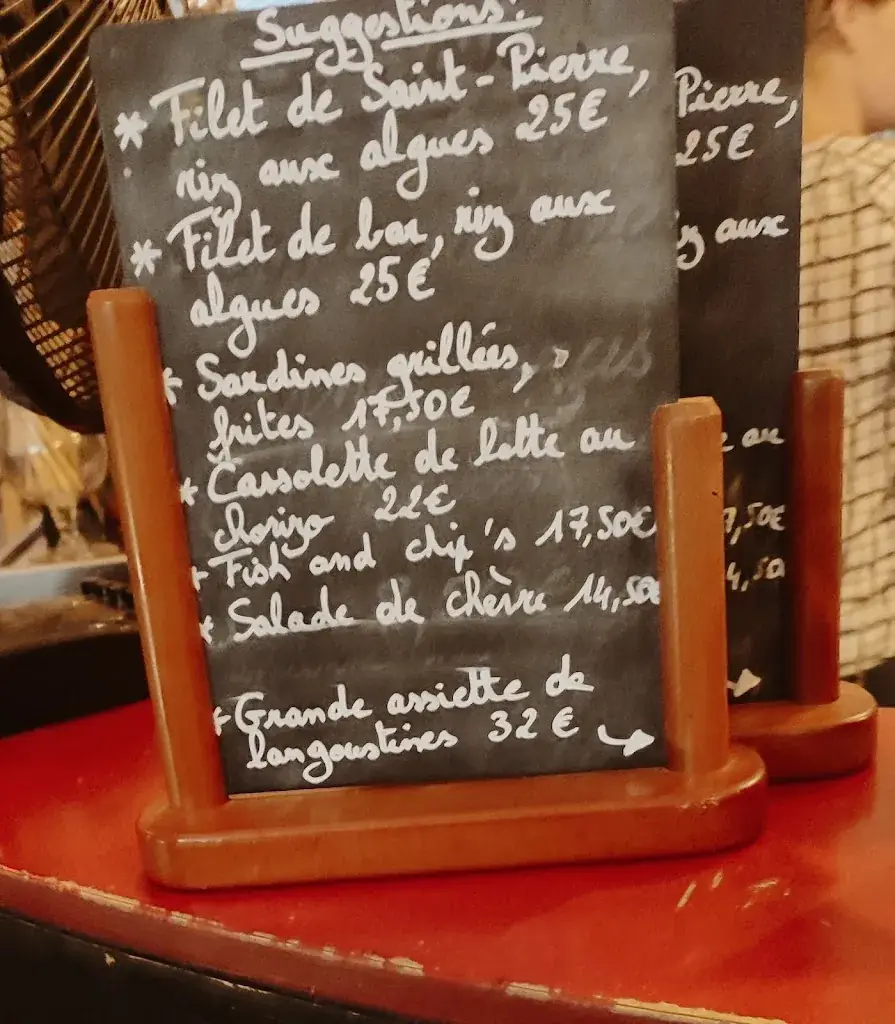 Suggestions:
* Filet de Saint-Pierre,
riz aux algues 25€
* Filet de bar, riz aux
algues 25€
* Sardines grillées,
frites 17,50€
* Cassolette de lotte au
chorizo 22€
* Fish and chip's 17,50€
* Salade de chèvre 14,50
* Grande assiette de
langoustines 32€ →
Pierre,
25€
z aux
au
7,50€
4,50
→